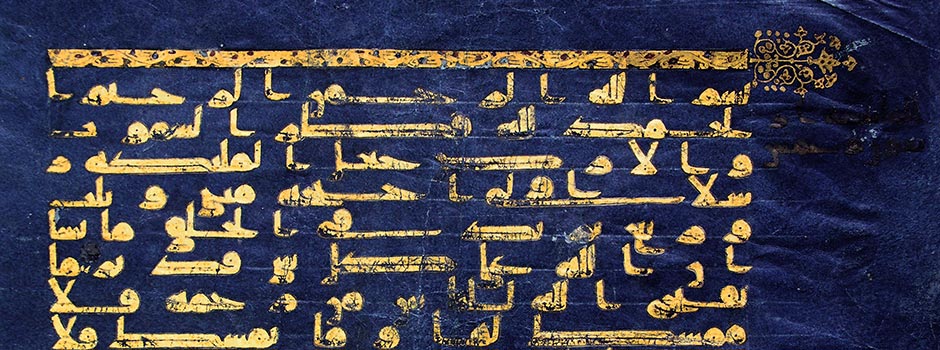 بسم الله الرحمن الرحيم
الحمد لله فطر السموت
والارض جعل الملئكه ر
سلا اولى اجنحه مثنى وثلث
وربع يزيد فى الخلق ما يشا
ان الله على كل شى قدير ما
يفتح الله للناس من رحمه فلا
ممسك لها وما يمسك فلا